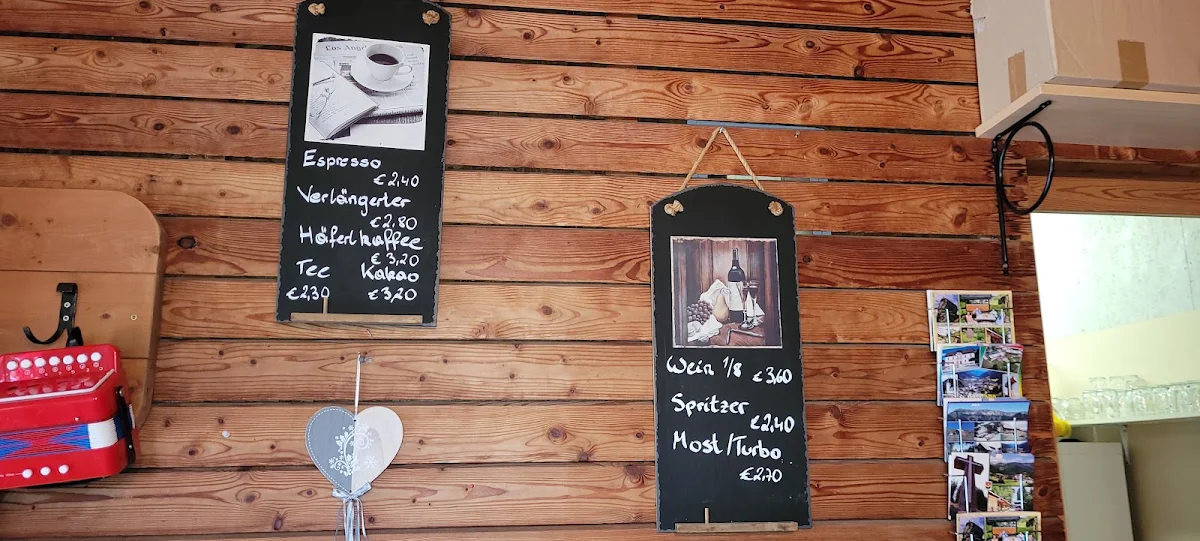 Los Ang
Espresso
€ 2,40
Verlängerter
€ 2,80
Häferlkaffee
€ 3,20
Tee Kakao
€ 2,30 € 3,20
Wein 1/8 € 3,60
Spritzer
€ 2,40
Most/Turbo
€ 2,70